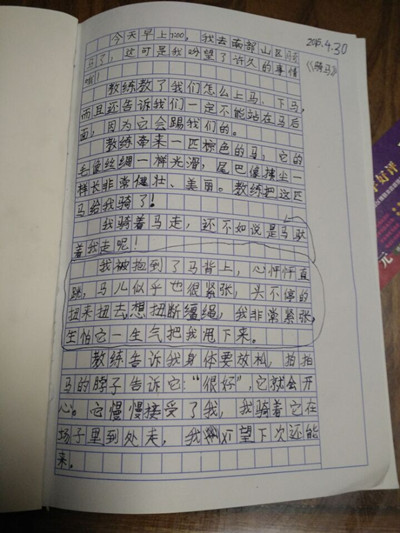 2015.4.30
《骑马》
今天早上7:00，我去南部山区骑
马了，这可是我盼望了许久的事情
啦！
教练教了我们怎么上马、下马，
而且还告诉我们一定不能站在马后
面，因为它会踢我们的。
教练牵来一匹棕色的马，它的
毛像丝绸一样光滑，尾巴像
一样长非常健壮、美丽。教练把这匹
马给我骑了！
我骑着马走，还不如说是马驮
着我走呢！
我被抱到了马背上，心怦怦直
跳，马儿似乎也很紧张，头不停的
扭来扭去想扭断缰绳，我非常紧张，
生怕它一生气把我甩下来。
教练告诉我身体要放松，拍拍
马的脖子告诉它：“很好”，它就会开
心。它慢慢接受了我，我骑着它在
场子里到处走，我希望下次还能
来。
好评
元